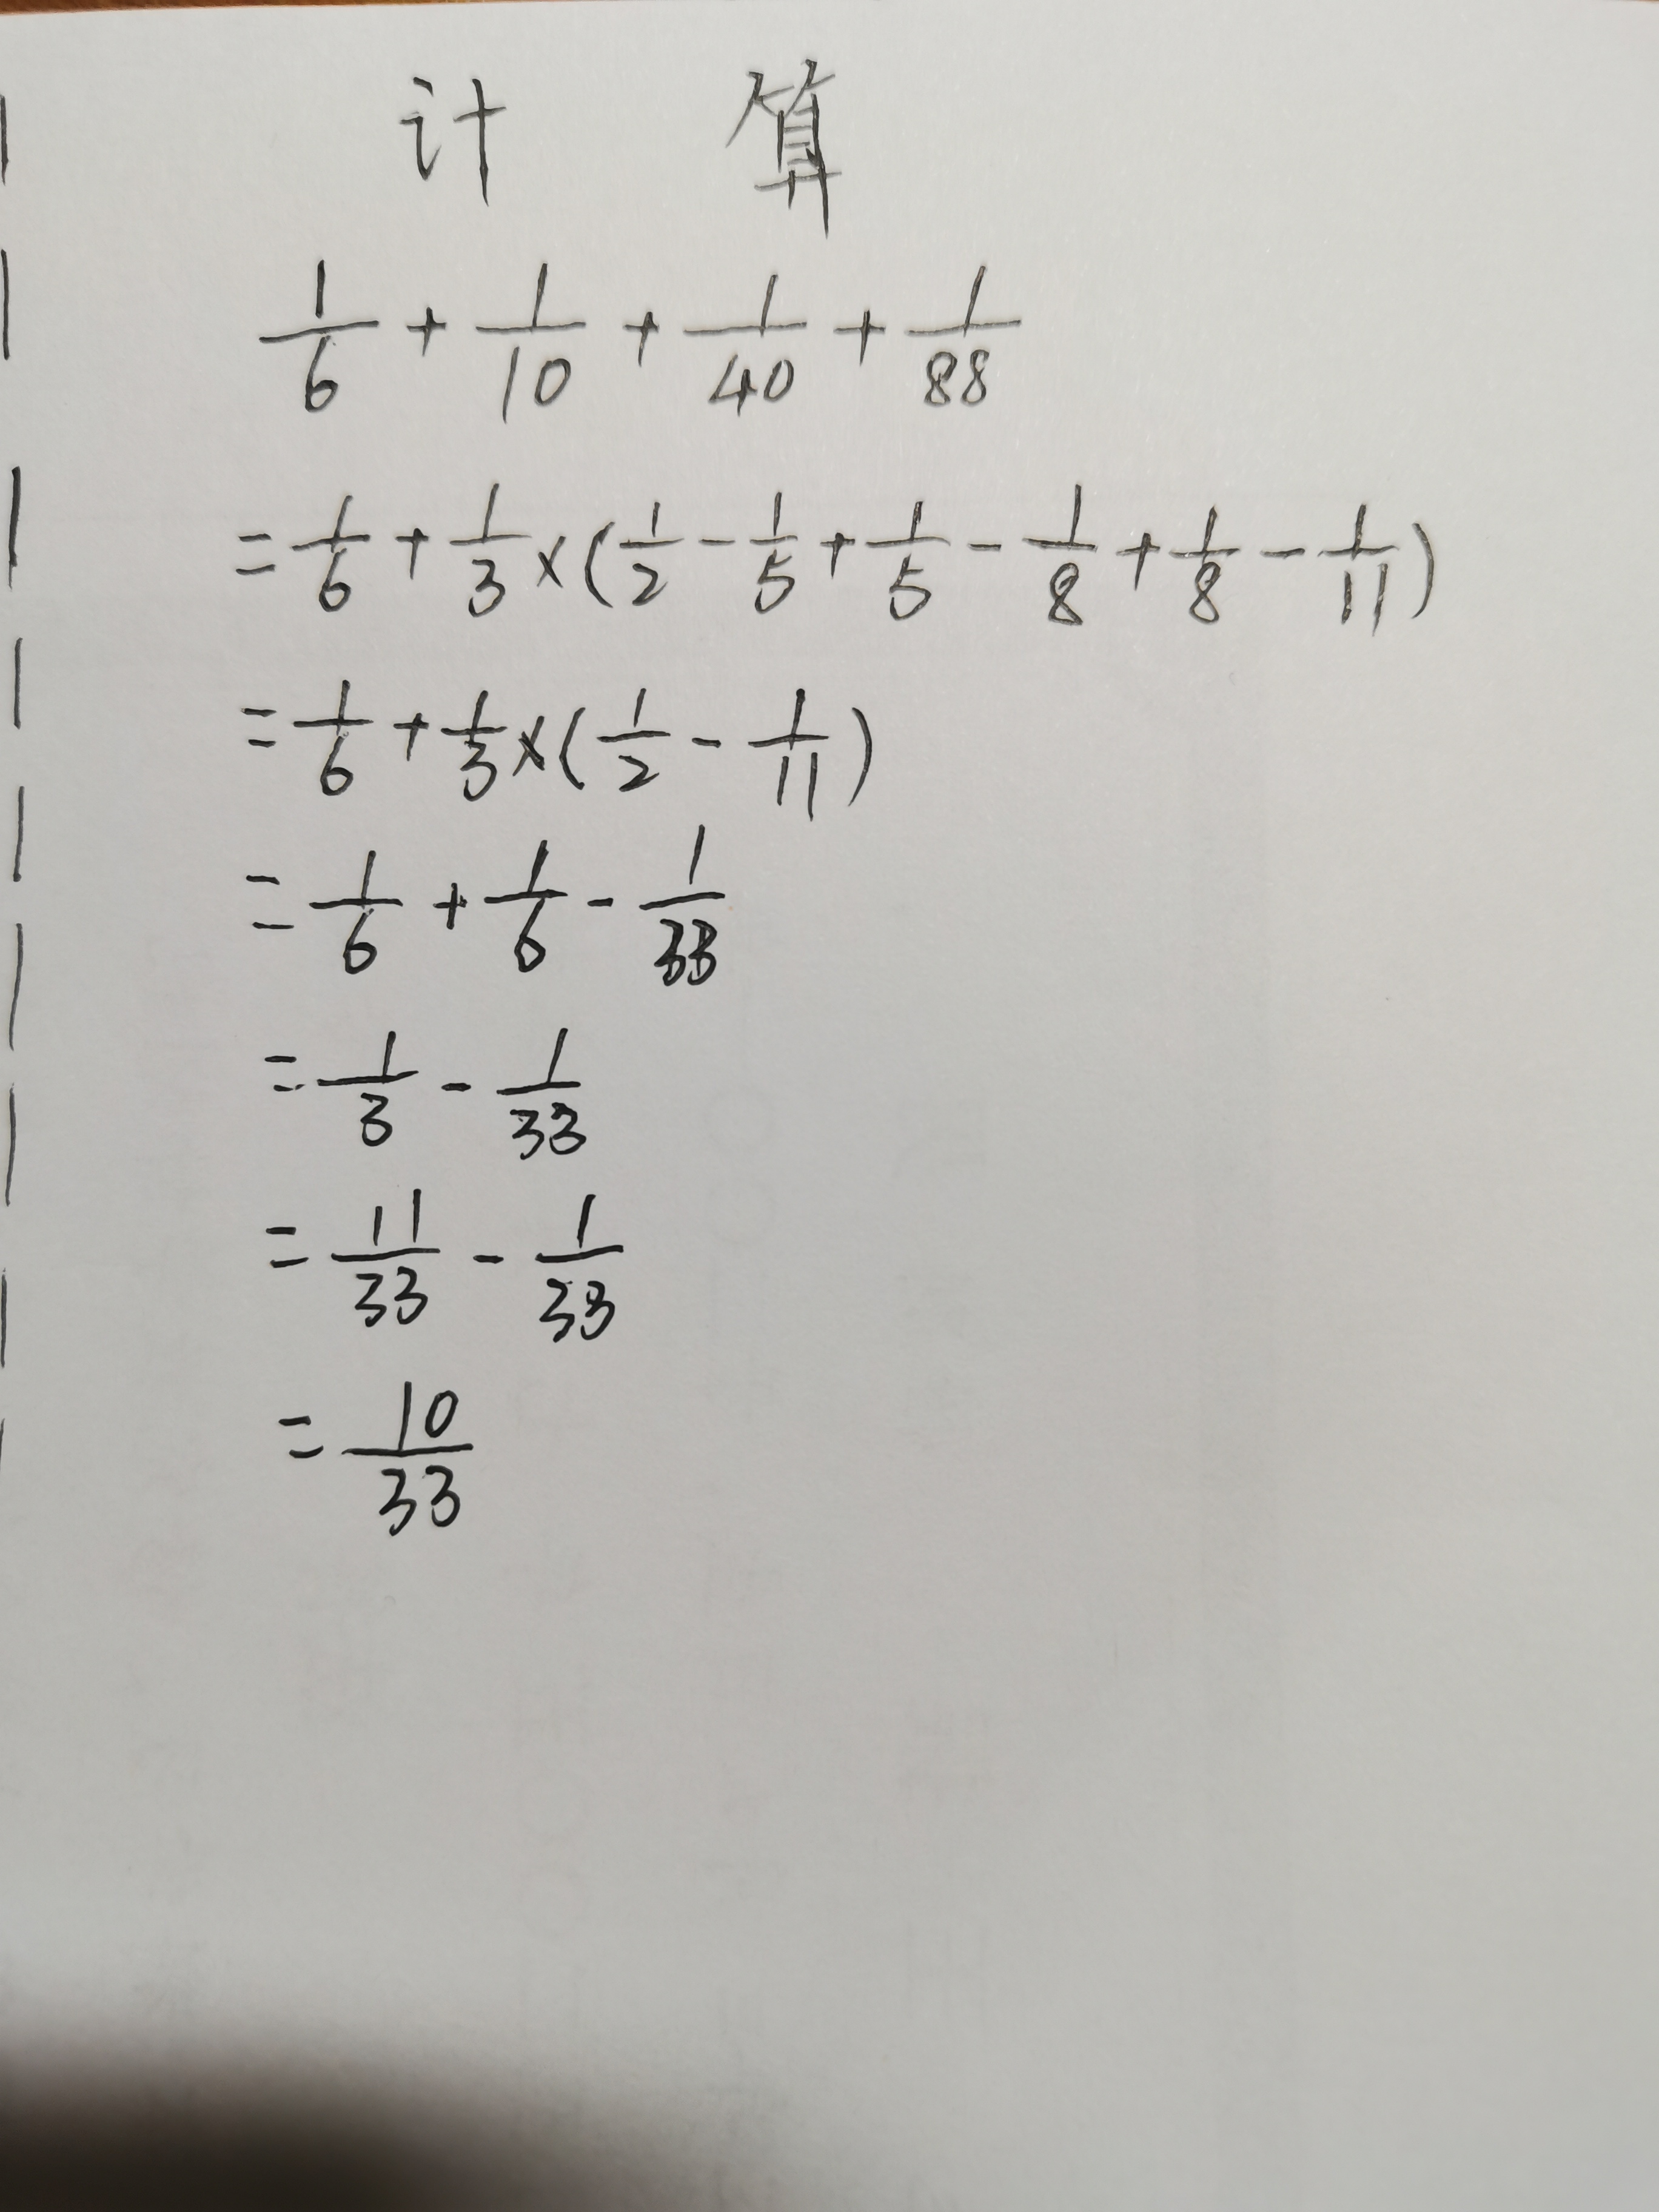 计 算
1/6 + 1/10 + 1/40 + 1/88
= 1/6 + 1/3 × (1/2 - 1/5 + 1/5 - 1/8 + 1/8 - 1/11)
= 1/6 + 1/3 × (1/2 - 1/11)
= 1/6 + 1/6 - 1/33
= 1/3 - 1/33
= 11/33 - 1/33
= 10/33